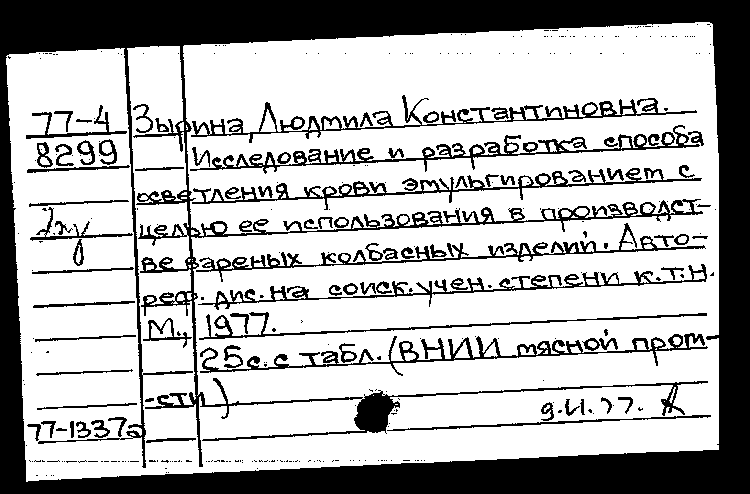 77-4 Зырина, Людмила Константиновна.
8299 Исследование и разработка способа
осветления крови эмульгированием с
целью ее использования в производст-
ве вареных колбасных изделий. Авто-
реф. дис. на соиск. учен. степени к.т.н.
М., 1977.
25с. с табл. (ВНИИ мясной пром-
-сти).
77-1337а